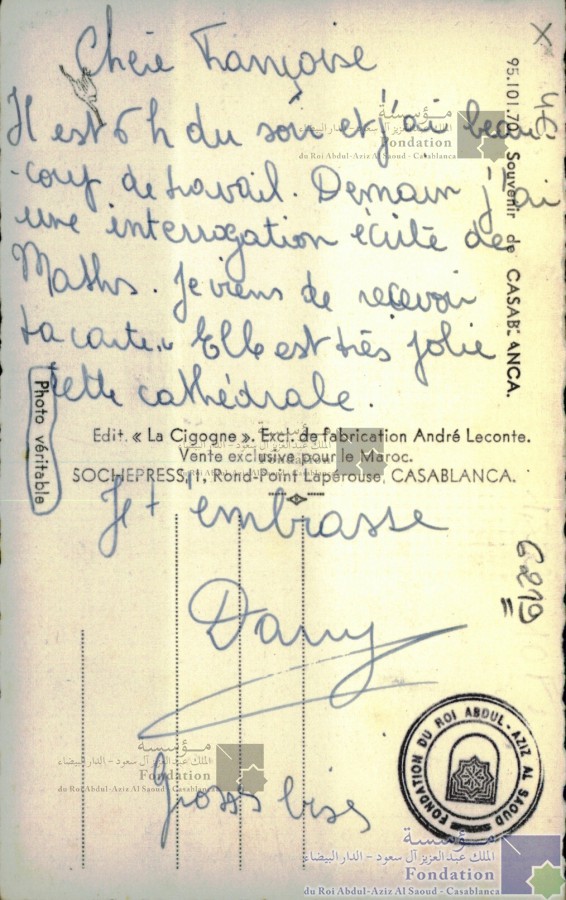 Chère Françoise
Il est 6h du soir et j'ai beau-
-coup de travail. Demain j'ai
une interrogation écrite de
Maths. Je viens de recevoir
ta carte. Elle est très jolie
cette cathédrale.
Je t'embrasse
Dany
Grosses bises
Edit. « La Cigogne ». Excl. de fabrication André Leconte.
Vente exclusive pour le Maroc.
SOCHEPRESS, 1, Rond-Point Lapérouse, CASABLANCA.
Photo véritable
95.101.70 Souvenir de CASABLANCA.
X
6219
FONDATION DU ROI ABDUL-AZIZ AL SAOUD
مؤسسة
الملك عبدالعزيز آل سعود - الدار البيضاء
Fondation
du Roi Abdul-Aziz Al Saoud - Casablanca
مؤسسة
الملك عبدالعزيز آل سعود - الدار البيضاء
Fondation
du Roi Abdul-Aziz Al Saoud - Casablanca
مؤسسة
الملك عبدالعزيز آل سعود - الدار البيضاء
Fondation
du Roi Abdul-Aziz Al Saoud - Casablanca
مؤسسة
الملك عبدالعزيز آل سعود - الدار البيضاء
Fondation
du Roi Abdul-Aziz Al Saoud - Casablanca